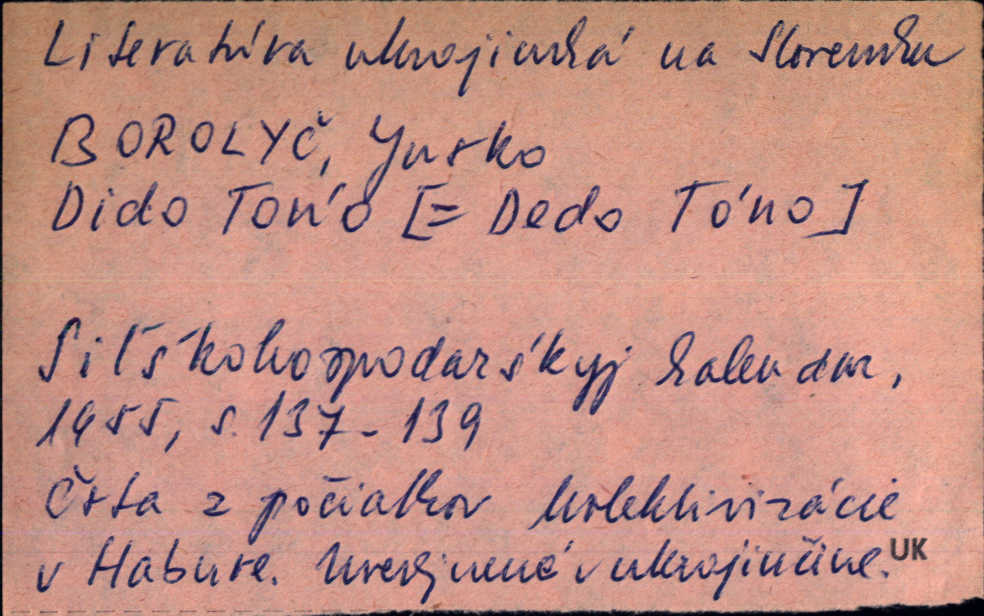 Literatúra ukrajinská na Slovensku
BOROLYČ, Jurko
Dido Tońo [= Dedo Tóno]
Siľśkohospodarśkyj kalendar,
1955, s. 137-139
Črta z počiatkov kolektivizácie
v Habure. Uverejnené v ukrajinčine.
UK